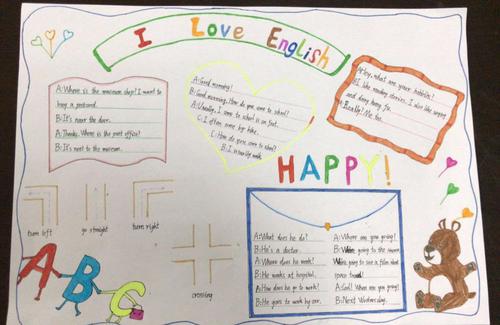 I Love English
A: Where is the museum shop? I want to
buy a postcard.
B: It's near the door.
A: Thanks. Where is the post office?
B: It's next to the museum.
A: Good morning!
B: Good morning. How do you come to school?
A: Usually, I come to school on foot.
C: I often come by bike.
C: How do you come to school?
B: I usually walk.
what are your hobbies?
I like reading stories. I also like
and doing kung fu.
Really? Me too.
HAPPY!
turn left
go straight
turn right
crossing
ABC
A: What does he do?
B: He's a doctor.
A: Where does he work?
B: He works at hospital.
A: How does he go to work?
B: He goes to work by car.
A: Where are you going?
B: We're going to the cinema.
We're going to see a film about
space travel!
A: Cool! When are you going?
B: Next Wednesday.